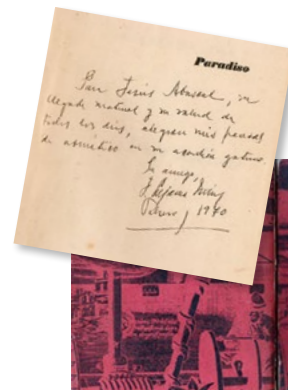 Paradiso
Para Jesús Abascal, su
llegada matinal y su salud de
todos los días, alegran mis pausas
de asmático en su acordeón
Su amigo,
J. Lezama Lima
1970